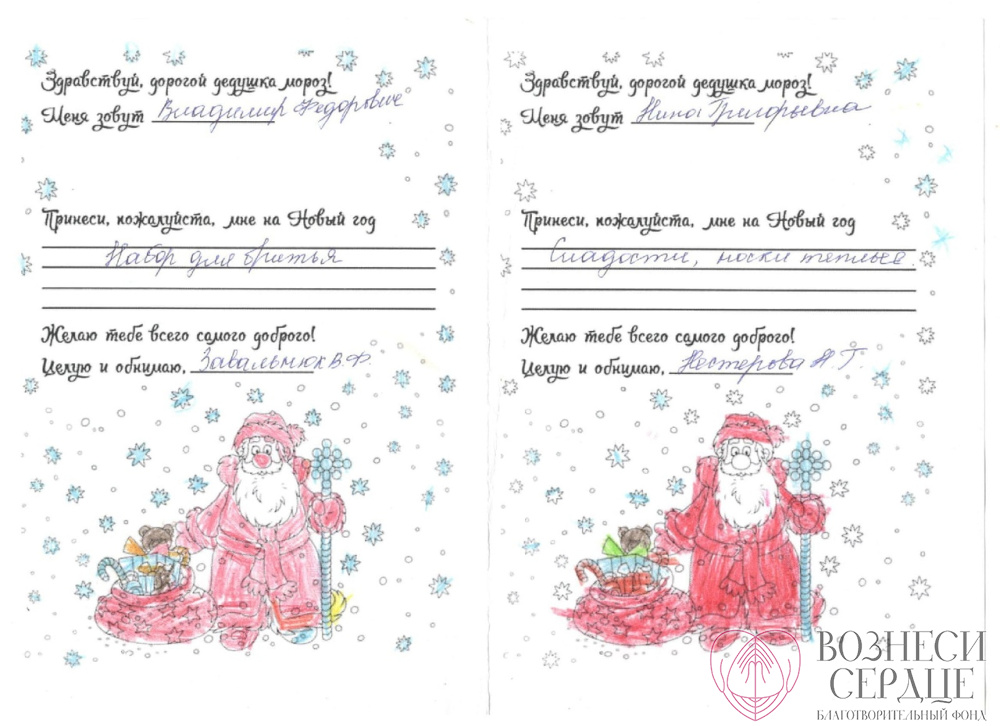 Здравствуй, дорогой дедушка мороз!
Меня зовут Владимир Федорович
Принеси, пожалуйста, мне на Новый год
Набор для бритья
Желаю тебе всего самого доброго!
Целую и обнимаю, Завальнюк В. Ф.
Здравствуй, дорогой дедушка мороз!
Меня зовут Нина Григорьевна
Принеси, пожалуйста, мне на Новый год
Сладости, носки теплые.
Желаю тебе всего самого доброго!
Целую и обнимаю, Нестерова Н. Г.
ВОЗНЕСИ
СЕРДЦЕ
БЛАГОТВОРИТЕЛЬНЫЙ ФОНД